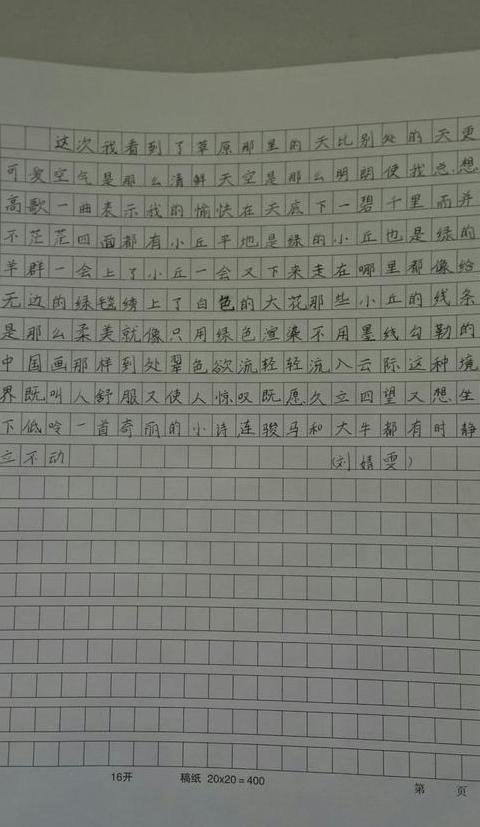 这次我看到了草原那里的天比别处的天更
可爱空气是那么清鲜天空是那么明朗使我总想
高歌一曲表示我的愉快在天底下一碧千里而并
不茫茫四面都有小丘平地是绿的小丘也是绿的
羊群一会上了小丘一会又下来走在哪里都像给
无边的绿毯绣上了白色的大花那些小丘的线条
是那么柔美就像只用绿色渲染不用墨线勾勒的
中国画那样到处翠色欲流轻轻流入云际这种境
界既叫人舒服又使人惊叹既愿久立四望又想坐
下低吟一首奇丽的小诗连骏马和大牛都有时静
立不动 (刘婧雯)
16开 稿纸 20x20=400 第 页